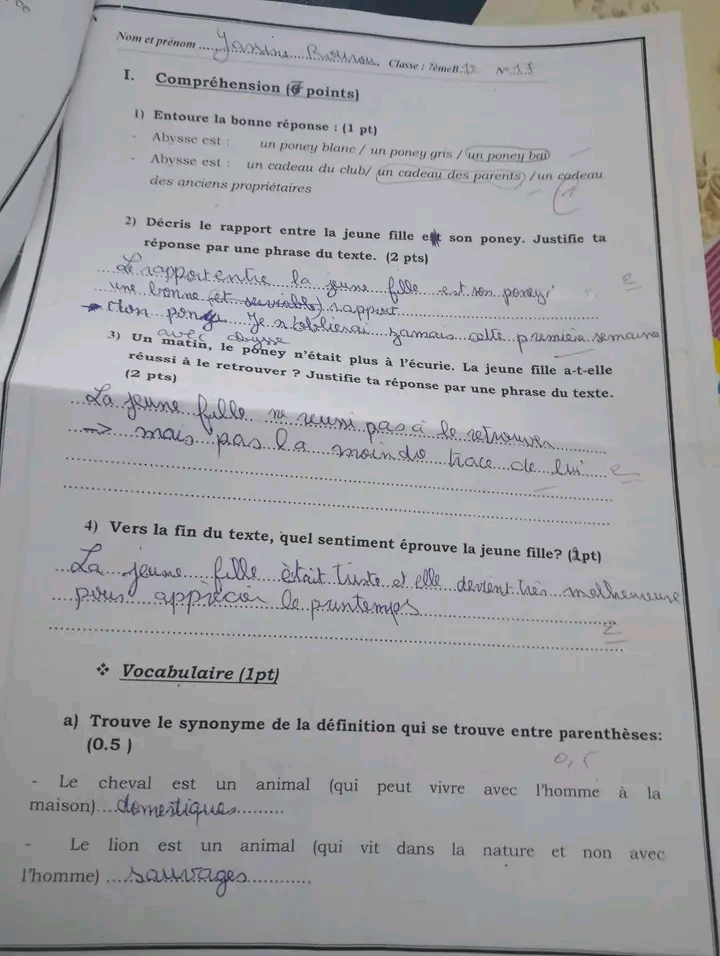 Nom et prénom ...... Classe : 7èmeB.13 N°.13
I. Compréhension ( points)
1) Entoure la bonne réponse : (1 pt)
- Abysse est : un poney blanc / un poney gris / un poney bai
- Abysse est : un cadeau du club/ un cadeau des parents /un cadeau
des anciens propriétaires
1
2) Décris le rapport entre la jeune fille et son poney. Justifie ta
réponse par une phrase du texte. (2 pts)
Le rapport entre la jeune fille est son poney
2
une bonne rapport
→ Mon poney Je n'oublierai jamais cette première semaine
avec abysse
3) Un matin, le poney n'était plus à l'écurie. La jeune fille a-t-elle
réussi à le retrouver ? Justifie ta réponse par une phrase du texte.
(2 pts)
La jeune fille ne reussi pas à le retrouver
→ mais pas la moindre trace de lui 2
4) Vers la fin du texte, quel sentiment éprouve la jeune fille? (1pt)
La jeune fille était triste et elle devient très malheureuse
pour apprécier le printemps
2
❖ Vocabulaire (1pt)
a) Trouve le synonyme de la définition qui se trouve entre parenthèses:
(0.5 )
0,5
- Le cheval est un animal (qui peut vivre avec l'homme à la
maison)...domestiques.........
- Le lion est un animal (qui vit dans la nature et non avec
l'homme) ...sauvages............